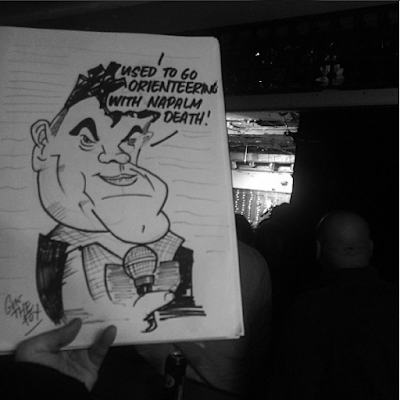 I
USED TO GO
ORIENTEERING
WITH NAPALM
DEATH!
GUY
THE
FOX